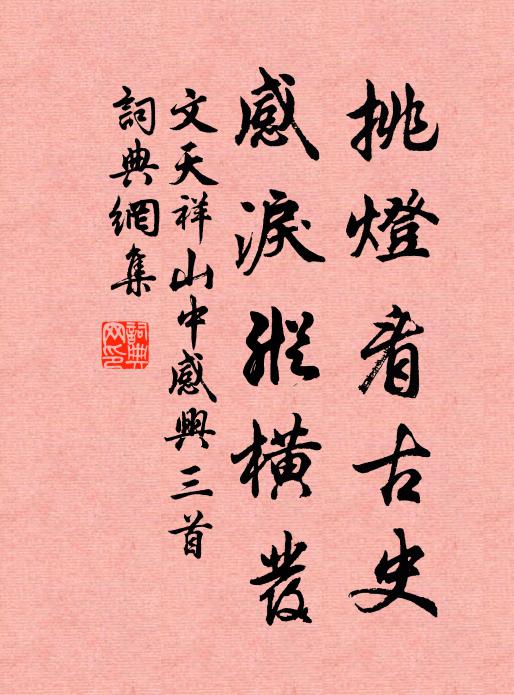 挑燈看古史
感淚縱橫發
文天祥山中感興三首
詞典網集
詞典網印